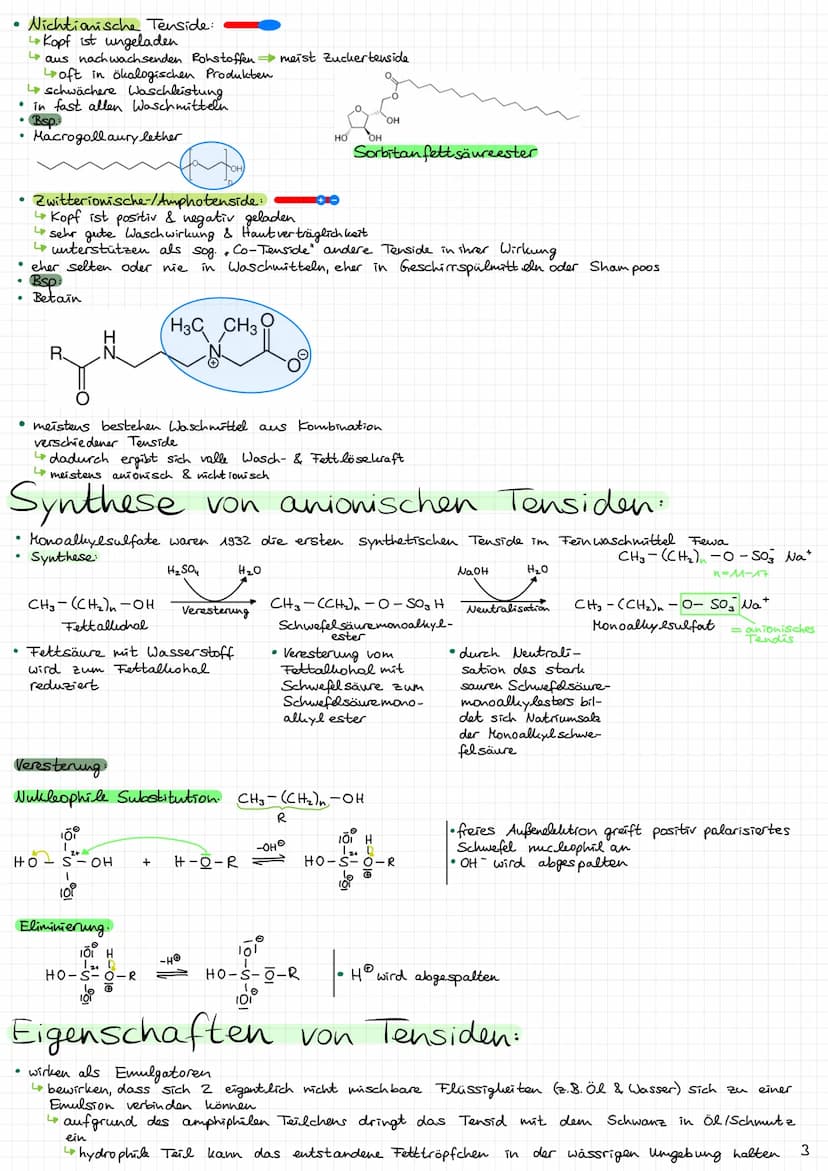 • Nichtionische Tenside:
↳ Kopf ist ungeladen
↳ aus nachwachsenden Rohstoffen ⇒ meist Zuckertenside
↳ oft in ökologischen Produkten
↳ schwächere Waschleistung
• in fast allen Waschmitteln
• Bsp.
• Macrogollaurylether
O
OH
n
O
O
OH
O
HO OH
Sorbitanfettsäureester
• Zwitterionische-/Amphotenside:
↳ Kopf ist positiv & negativ geladen
↳ sehr gute Waschwirkung & Hautverträglichkeit
↳ unterstützen als sog. „Co-Tenside" andere Tenside in ihrer Wirkung
• eher selten oder nie in Waschmitteln, eher in Geschirrspülmitteln oder Shampoos
• Bsp:
• Betain
H₃C CH₃ O
H
R N N⊕ O⊖
O
• meistens bestehen Waschmittel aus Kombination
verschiedener Tenside
↳ dadurch ergibt sich volle Wasch- & Fettlösekraft
↳ meistens anionisch & nichtionisch
Synthese von anionischen Tensiden:
• Monoalkylsulfate waren 1932 die ersten synthetischen Tenside im Feinwaschmittel Fewa
• Synthese:
CH₃-(CH₂)ₙ-O-SO₃⁻ Na⁺
n=11-17
H₂SO₄ H₂O NaOH H₂O
CH₃-(CH₂)ₙ-OH Veresterung CH₃-(CH₂)ₙ-O-SO₃H Neutralisation CH₃-(CH₂)ₙ-O-SO₃⁻ Na⁺
Fettalkohol Schwefelsäuremonoalkyl-
ester
Monoalkylsulfat = anionisches
Tendis
• Fettsäure mit Wasserstoff
wird zum Fettalkohol
reduziert
• Veresterung vom
Fettalkohol mit
Schwefelsäure zum
Schwefelsäuremono-
alkylester
• durch Neutrali-
sation des stark
sauren Schwefelsäure-
monoalkylesters bil-
det sich Natriumsalz
der Monoalkylschwe-
felsäure
Veresterung:
Nukleophile Substitution: CH₃-(CH₂)ₙ-OH
R
|O|⊖
HO-S²⁺-OH + H-O-R ⇌ -OH⊖ HO-S²⁺-O-R
|O|⊖
|O|⊖ H
⊕
|O|⊖
• freies Außenelektron greift positiv polarisiertes
Schwefel nucleophil an
• OH⁻ wird abgespalten
Eliminierung:
|O|⊖ H
HO-S²⁺-O-R ⇌ -H⊕ HO-S-O-R
|O|⊖ ⊕
|O|⊖
|O|⊖
• H⊕ wird abgespalten
Eigenschaften von Tensiden:
• wirken als Emulgatoren
↳ bewirken, dass sich 2 eigentlich nicht mischbare Flüssigkeiten (z.B. Öl & Wasser) sich zu einer
Emulsion verbinden können
↳ aufgrund des amphiphilen Teilchens dringt das Tensid mit dem Schwanz in Öl/Schmutz
ein
↳ hydrophile Teil kann das entstandene Fetttröpfchen in der wässrigen Umgebung halten
3